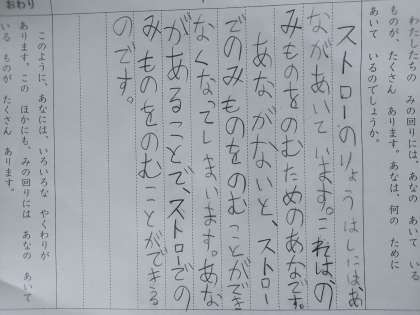 わたしたちの みの回りには、あなの あいて いる
ものが、たくさん あります。あなは、何の ために
あいて いるのでしょうか。
ストローのりょうはしには、あ
ながあいています。これは、の
みものをのむためのあなです。
あながないと、ストロー
でのみものをのむことができ
なくなってしまいます。あな
があることで、ストローでの
みものをのむことができる
のです。
このように、あなには、いろいろな やくわりが
あります。この ほかにも、みの回りには あなの あいて
いる ものが たくさん あります。
おわり